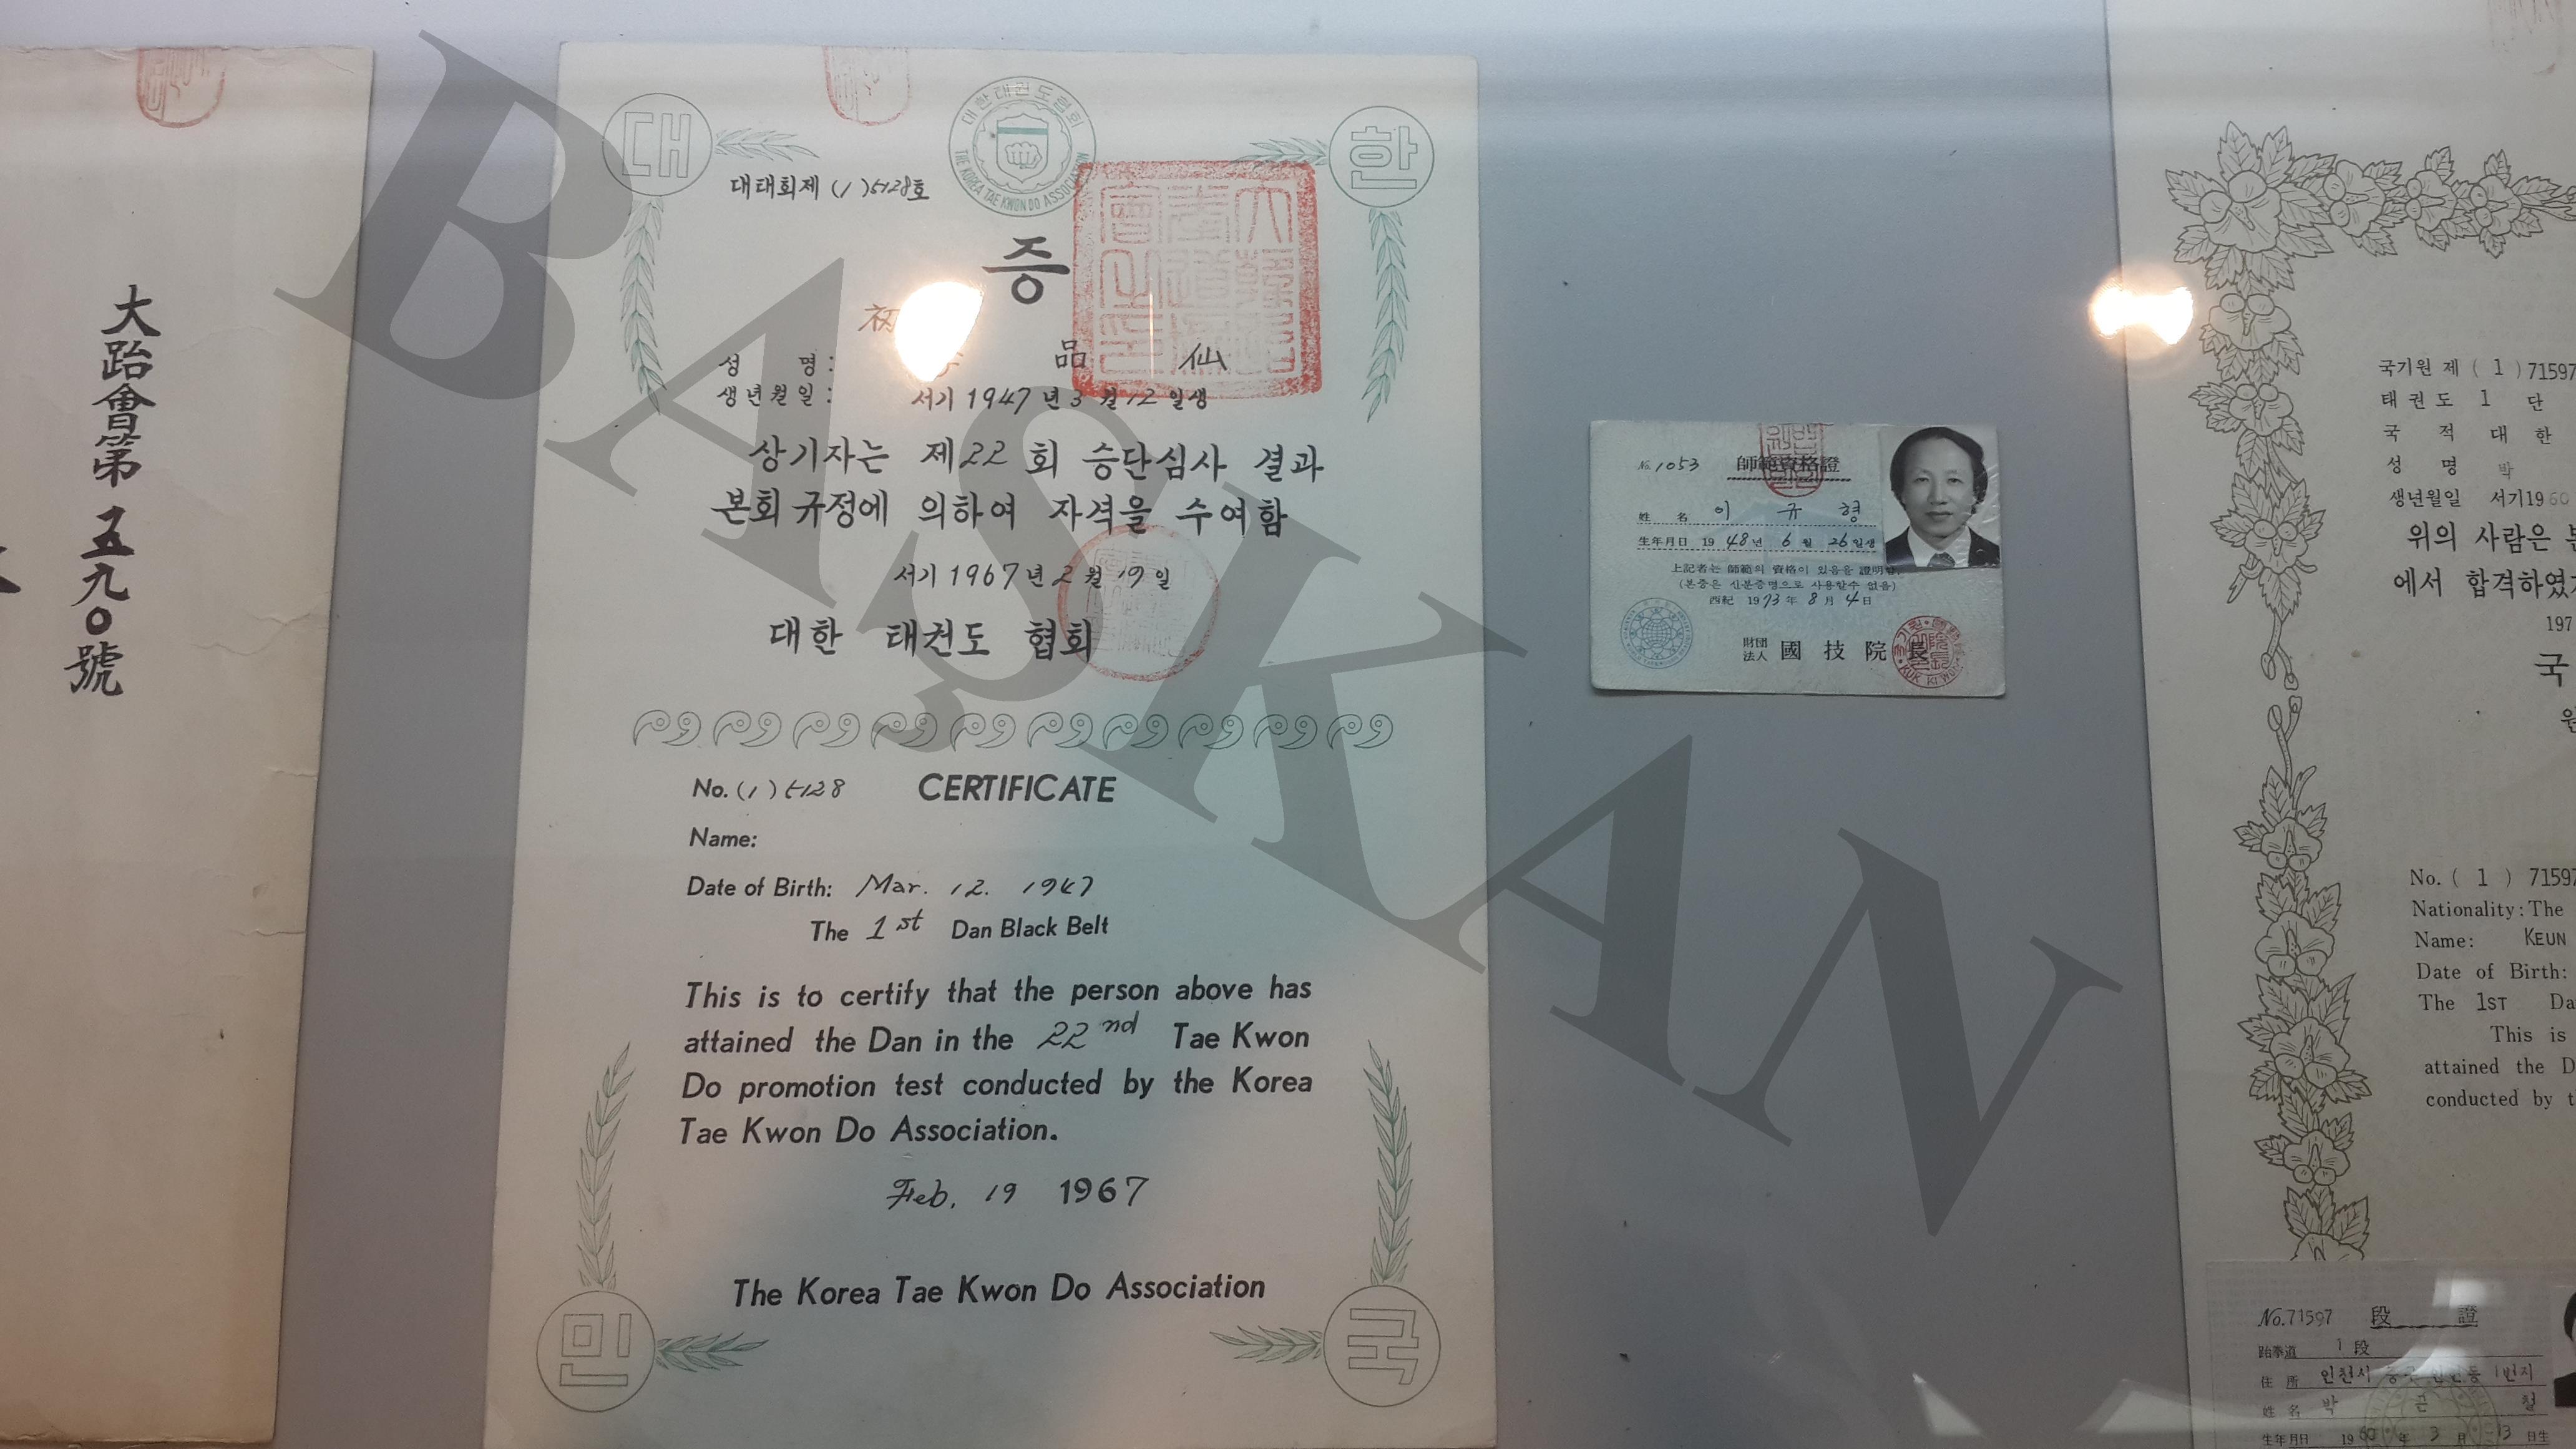 大跆會第五九〇號
대
한
대한태권도협회
THE KOREA TAE KWON DO ASSOCIATION
대태회제 (1) 5128호
증
初
성 명: 品 仙
생년월일: 서기 1947년 3월 12일생
상기자는 제22회 승단심사 결과
본회 규정에 의하여 자격을 수여함
서기 1967년 2월 19일
대한 태권도 협회
No. (1) 5128 CERTIFICATE
Name:
Date of Birth: Mar. 12. 1947
The 1st Dan Black Belt
This is to certify that the person above has
attained the Dan in the 22nd Tae Kwon
Do promotion test conducted by the Korea
Tae Kwon Do Association.
Feb. 19 1967
The Korea Tae Kwon Do Association
민
국
No. 1053 師範資格證
姓名 이 규 형
生年月日 1948년 6월 26일생
上記者는 師範의 資格이 있음을 證明함
(본증은 신분증명으로 사용할수 없음)
西紀 1973年 8月 4日
財団法人 國技院長
국기원 제 ( 1 ) 71597
태권도 1 단
국 적 대 한
성 명 박
생년월일 서기1960
위의 사람은
에서 합격하였
197
국
원
No. ( 1 ) 71597
Nationality: The
Name: KEUN
Date of Birth:
The 1ST Da
This is
attained the D
conducted by t
No.71597 段 證
跆拳道 1 段
住所 인천시 1번지
姓名 박 근 철
生年月日 1960年 3月 13日生
BAŞKAN